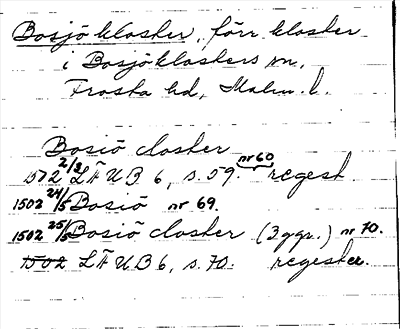 Bosjökloster, förr kloster
i Bosjöklosters sn,
Frosta hd, Malm. l.
Bosiö closter
1502 2/3 LÄUB 6, s. 59. nr 60, regest.
1502 24/5 Bosiö nr 69.
1502 25/5 Bosiö closter (3 ggr.) nr 70.
1502 LÄUB 6, s. 70. regester.